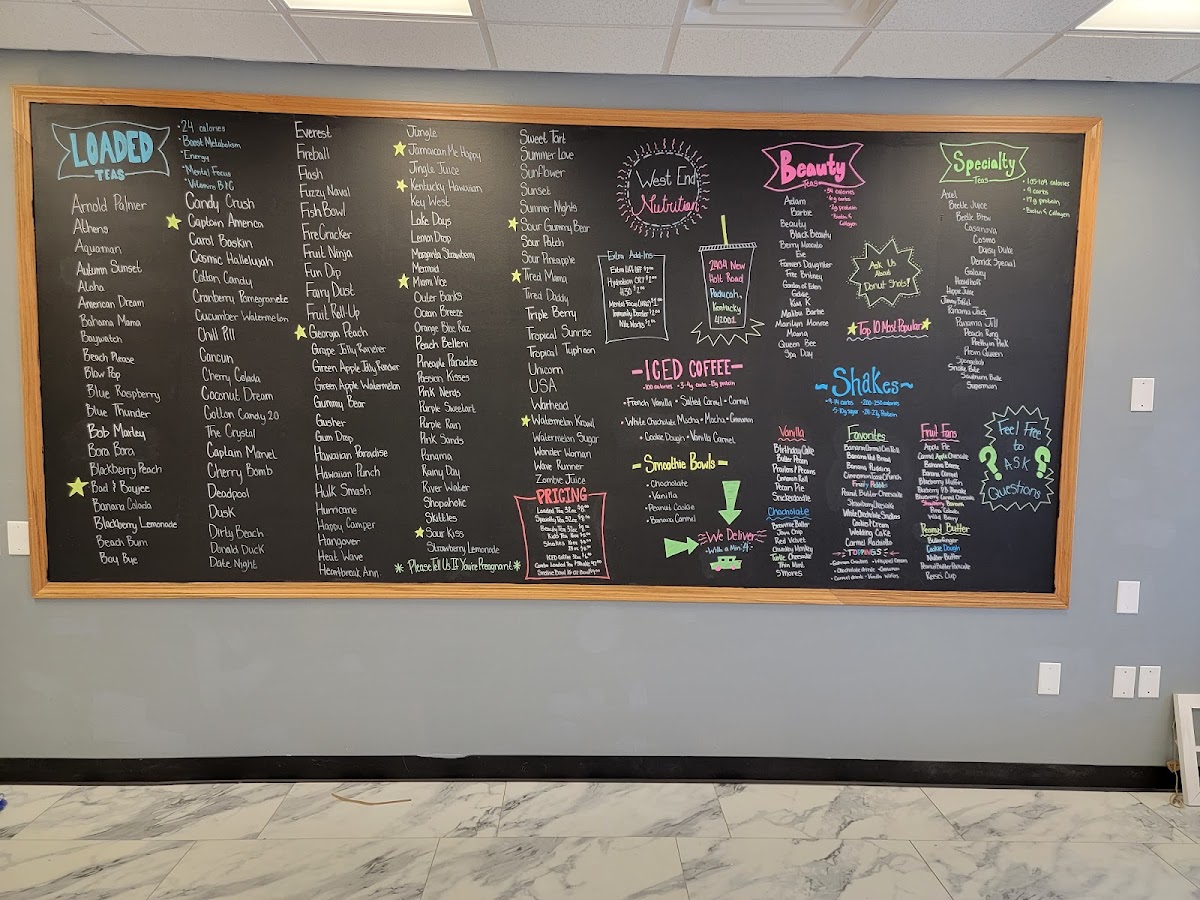 LOADED
TEAS
• 24 calories
• Boost Metabolism
• Energy
• Mental Focus
• Vitamins B&C
Arnold Palmer
Athens
Aquaman
Autumn Sunset
Aloha
American Dream
Bahama Mama
Baywatch
Beach Please
Blow Pop
Blue Raspberry
Blue Thunder
Bob Marley
Bora Bora
Blackberry Peach
Bad & Boujee
Banana Colada
Blackberry Lemonade
Beach Bum
Bay Bye
Candy Crush
Captain America
Carol Baskin
Cosmic Hallelujah
Cotton Candy
Cranberry Pomegranate
Cucumber Watermelon
Chill Pill
Cancun
Cherry Colada
Coconut Dream
Cotton Candy 2.0
The Crystal
Captain Marvel
Cherry Bomb
Deadpool
Dusk
Dirty Beach
Donald Duck
Date Night
Everest
Fireball
Flash
Fuzzy Naval
Fish Bowl
FireCracker
Fruit Ninja
Fun Dip
Fairy Dust
Fruit Roll-Up
Georgia Peach
Grape Jolly Rancher
Green Apple Jolly Rancher
Green Apple Watermelon
Gummy Bear
Gusher
Gum Drop
Hawaiian Paradise
Hawaiian Punch
Hulk Smash
Hurricane
Happy Camper
Hangover
Heat Wave
Heartbreak Ann
Jungle
Jamaican Me Happy
Jingle Juice
Kentucky Hawaiian
Key West
Lake Days
Lemon Drop
Margarita Strawberry
Mermaid
Miami Vice
Outer Banks
Ocean Breeze
Orange Blue Raz
Peach Bellini
Pineapple Paradise
Persian Kisses
Pink Nerds
Purple Sweetart
Purple Rain
Pink Sands
Panama
Rainy Day
River Water
Shopaholic
Skittles
Sour Kiss
Strawberry Lemonade
* Please Tell Us If You're Pregnant *
Sweet Tart
Summer Love
Sunflower
Sunset
Summer Nights
Sour Gummy Bear
Sour Patch
Sour Pineapple
Tired Mama
Tired Daddy
Triple Berry
Tropical Sunrise
Tropical Typhoon
Unicorn
USA
Warhead
Watermelon Krawl
Watermelon Sugar
Wonder Woman
Wave Runner
Zombie Juice
PRICING
West End
Nutrition
Extra Add-Ins
2404 New
Holt Road
Paducah,
Kentucky
42001
-ICED COFFEE-
• French Vanilla • Salted Carmel • Carmel
• White Chocolate Mocha • Mocha • Cinnamon
• Cookie Dough • Vanilla Carmel
- Smoothie Bowls -
• Chocholate
• Vanilla
• Peanut Cookie
• Banana Carmel
We Deliver
With a Min. 4!
Beauty
TEAS
Adam
Barbie
Beauty
Black Beauty
Berry Mocato
Eve
Farmers Daughter
Free Britney
Garden of Eden
Malibu Barbie
Marilyn Monroe
Mama
Queen Bee
Spa Day
Ask Us
About
Donut Shots!
Top 10 Most Popular
~Shakes~
Vanilla
Birthday Cake
Butter Pecan
Cinnamon Roll
Pecan Pie
Snickerdoodle
Chocholate
Brownie Batter
Java Chip
Red Velvet
Chunky Monkey
Turtle Cheesecake
Thin Mint
S'mores
Favorites
Banana Nut Bread
Banana Pudding
Cinnamon Toast Crunch
Fruity Pebbles
Peanut Butter Cheesecake
Strawberry Cheesecake
Cookies & Cream
Wedding Cake
Carmel Machiatto
TOPPINGS
Fruit Fans
Apple Pie
Carmel Apple Cheesecake
Banana Carmel
Blueberry Muffin
Strawberry Banana
Pina Colada
Wild Berry
Peanut Butter
Butterfinger
Cookie Dough
Nutter Butter
Peanut Butter Pancake
Reese's Cup
Specialty
TEAS
• 105-109 calories
• 9 carbs
• 17g protein
• Biotin &
Collagen
Axel
Beetle Juice
Beetle Brew
Casanova
Cosmo
Daisy Duke
Derrick Special
Galaxy
Hasselhoff
Hippie Juice
Panama Jack
Panama Jill
Peach Ring
Prom Queen
Spongebob
Snake Bite
Southern Belle
Superman
Feel Free
to
? ASK ?
Questions